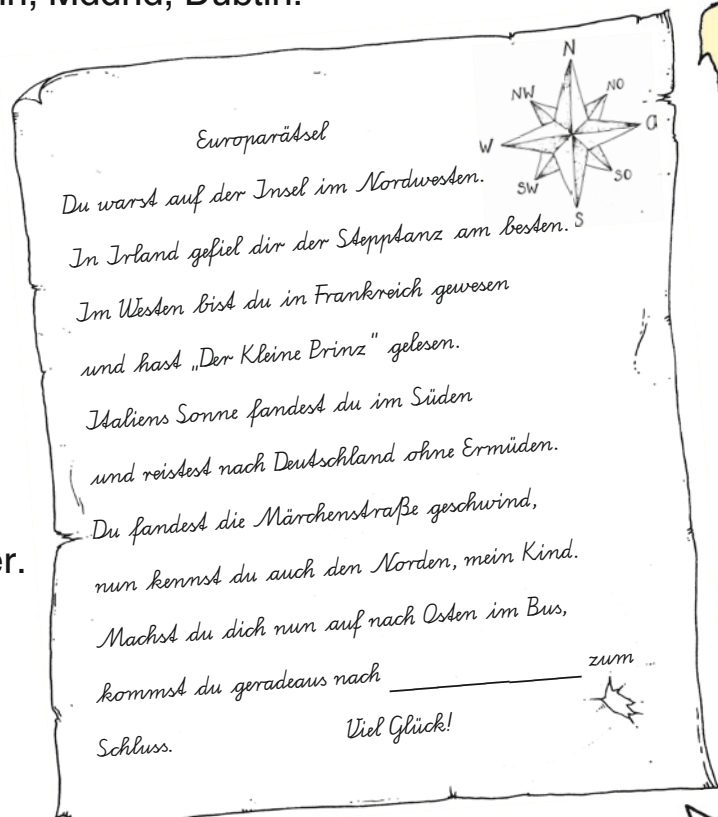 Madrid, Dublin.
N
NW NO
W O
SW SO
S
Europarätsel
Du warst auf der Insel im Nordwesten.
In Irland gefiel dir der Stepptanz am besten.
Im Westen bist du in Frankreich gewesen
und hast „Der Kleine Prinz" gelesen.
Italiens Sonne fandest du im Süden
und reistest nach Deutschland ohne Ermüden.
Du fandest die Märchenstraße geschwind,
nun kennst du auch den Norden, mein Kind.
Machst du dich nun auf nach Osten im Bus,
kommst du geradeaus nach ____________ zum
Schluss. Viel Glück!